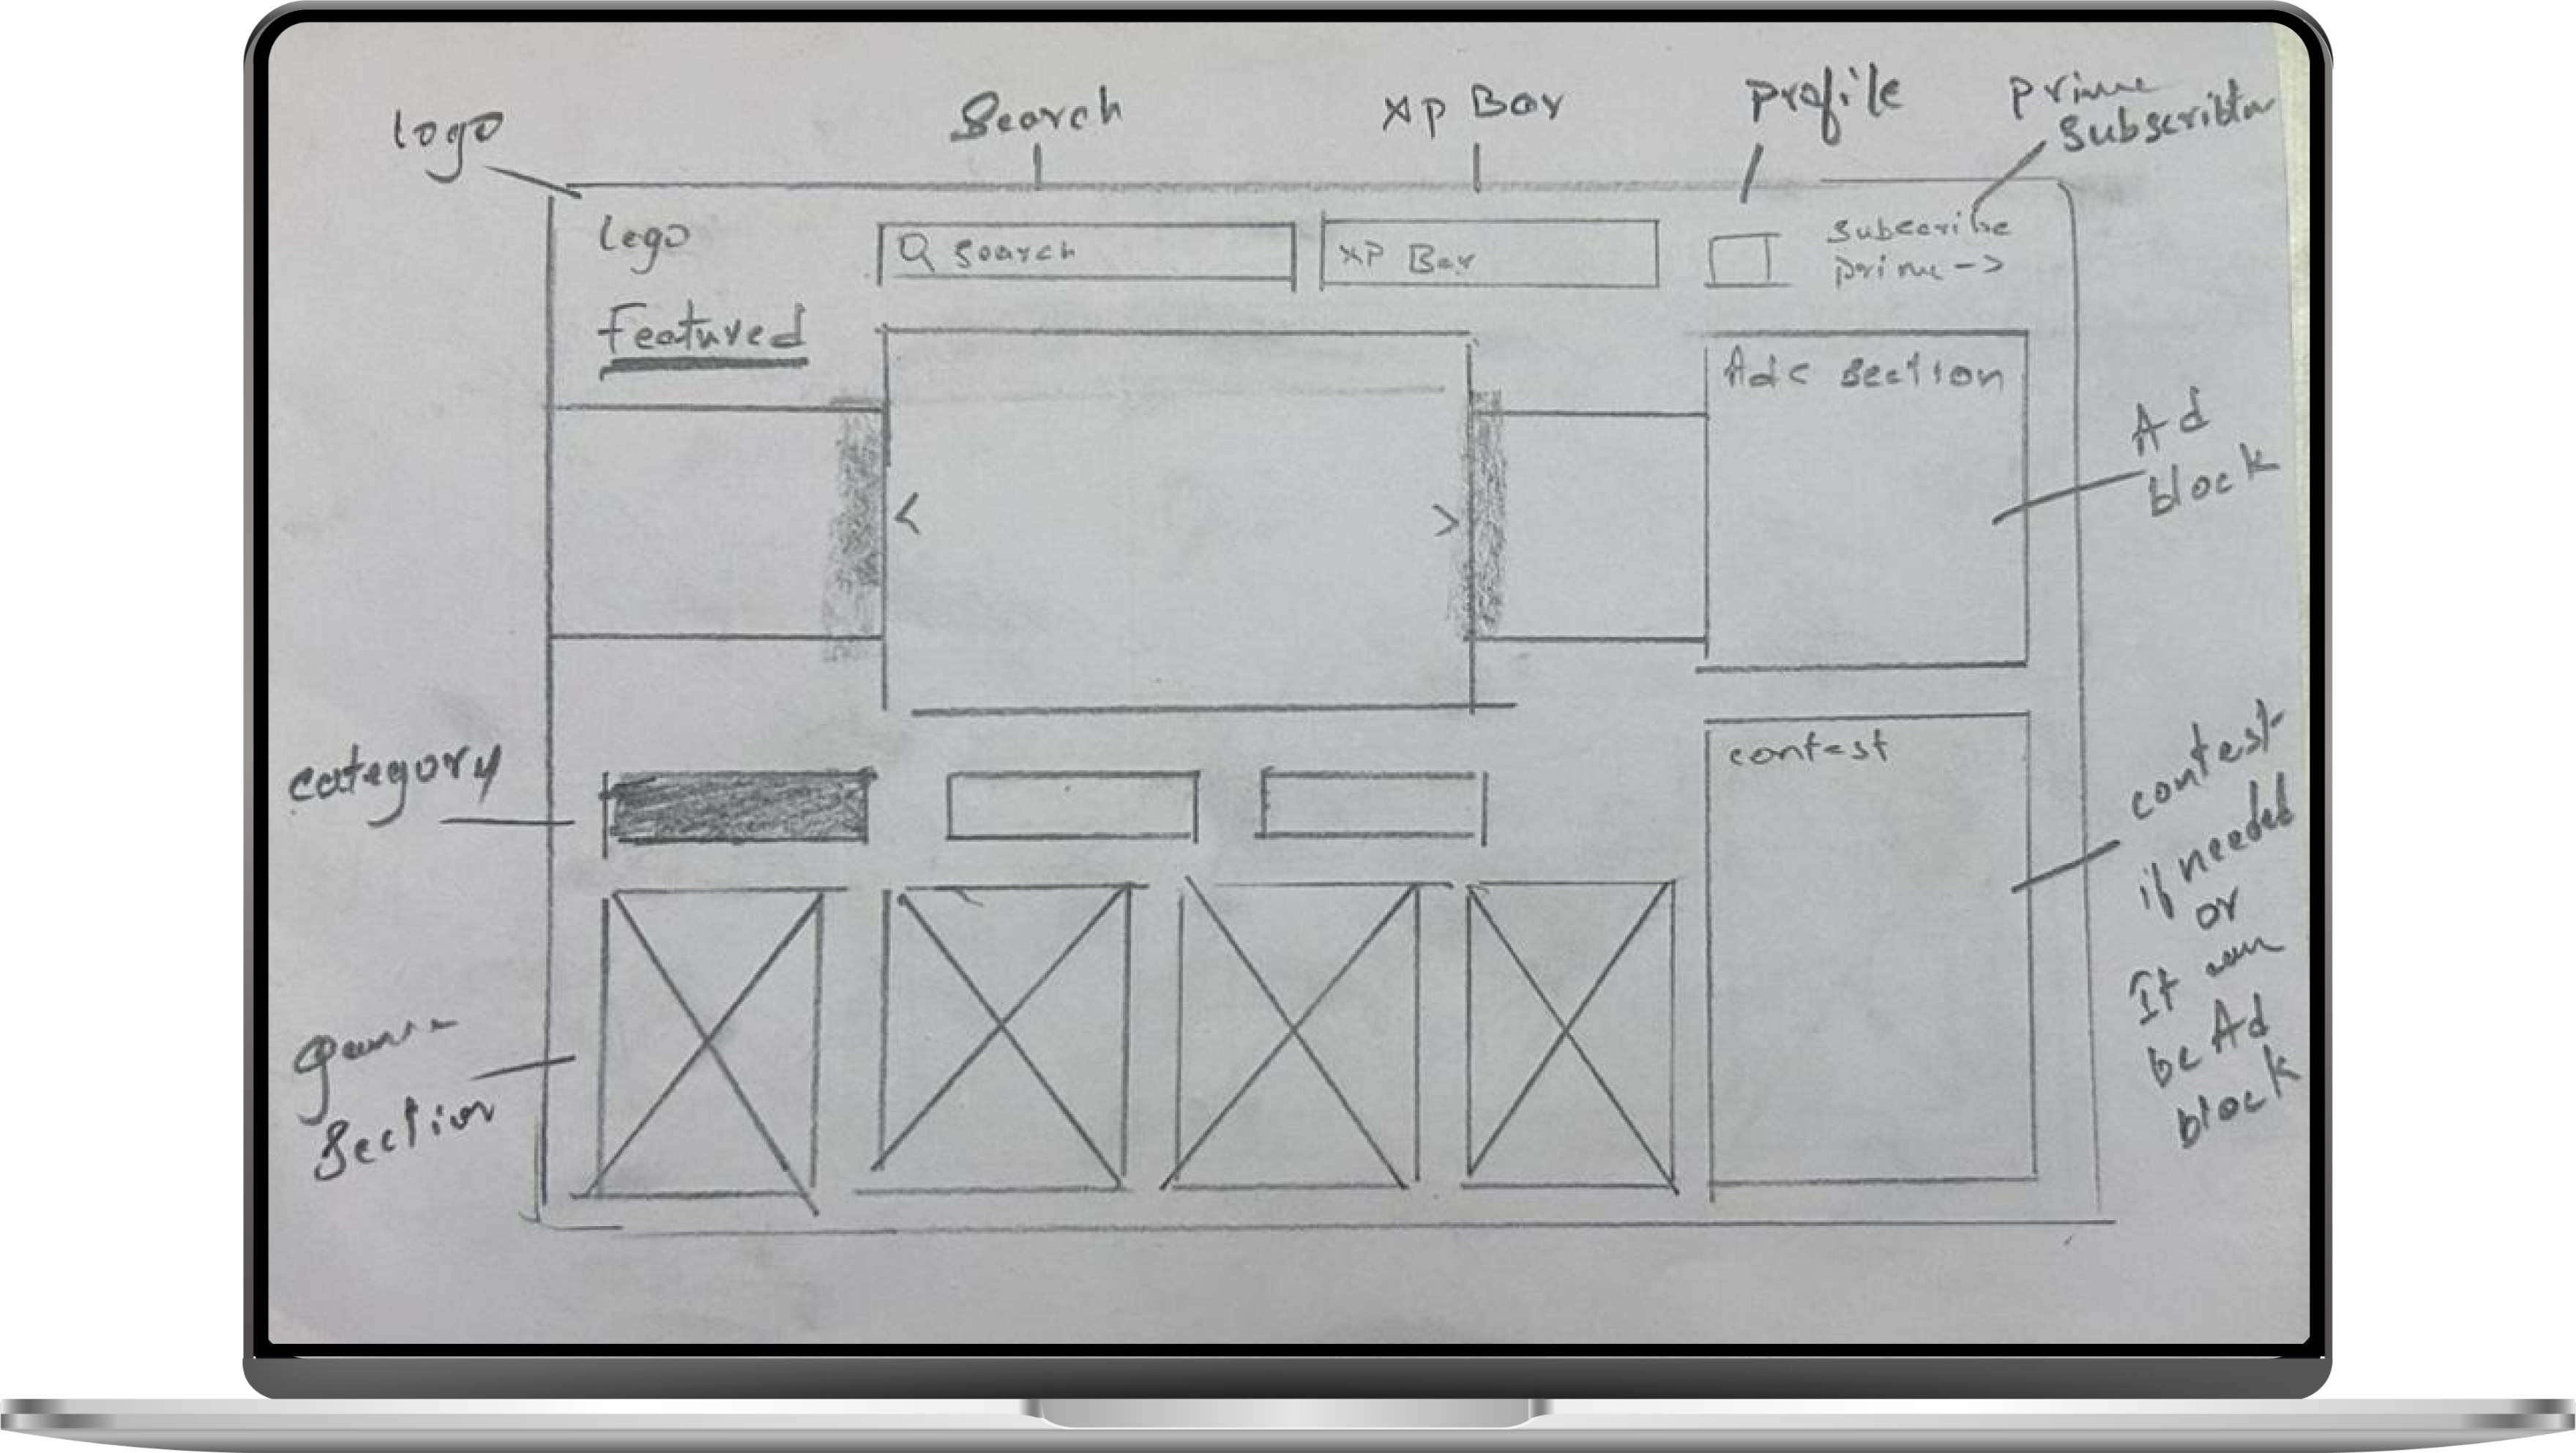 logo
Search
XP Bar
profile
prime
subscribtion
logo
Search
XP Bar
Subscribe
prime ->
Featured
Ads section
Ad
block
category
contest
contest
if needed
or
It can
be Ad
block
game
Section